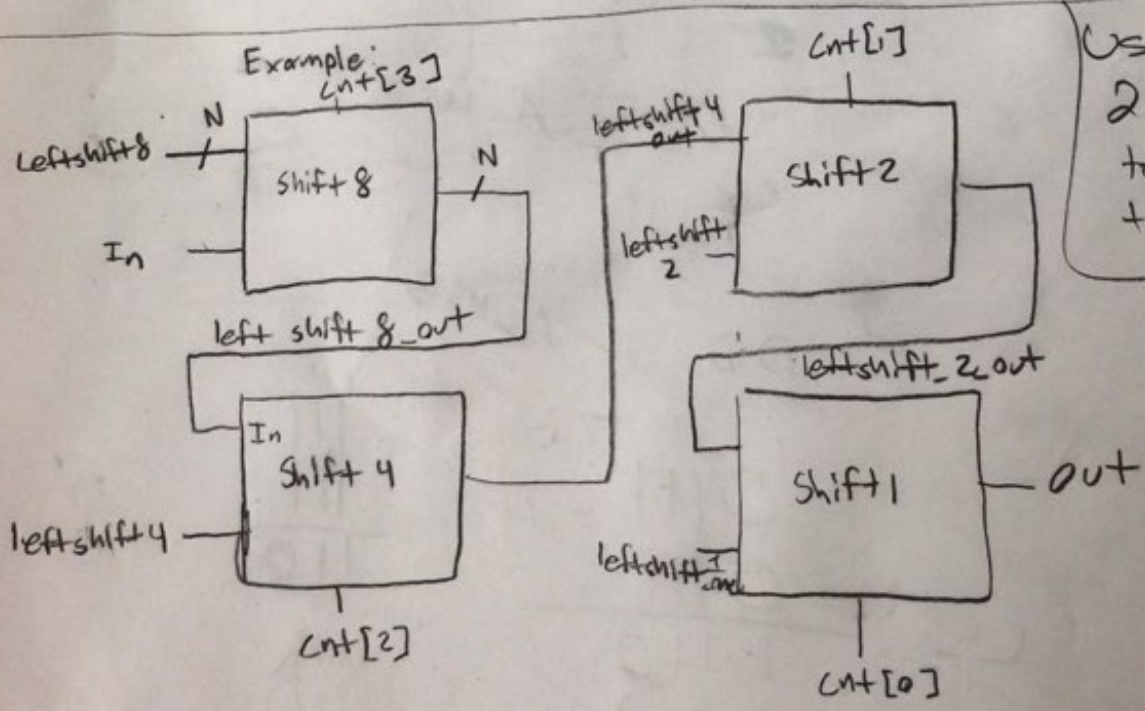 Example:
Cnt[3]
N
Leftshift8
Shift 8
N
In
left shift 8_out
In
Shift 4
leftshift4
Cnt[2]
Cnt[1]
leftshift4
out
Shift 2
leftshift
2
leftshift_2_out
Shift 1
out
leftshift
1
Cnt[0]
2